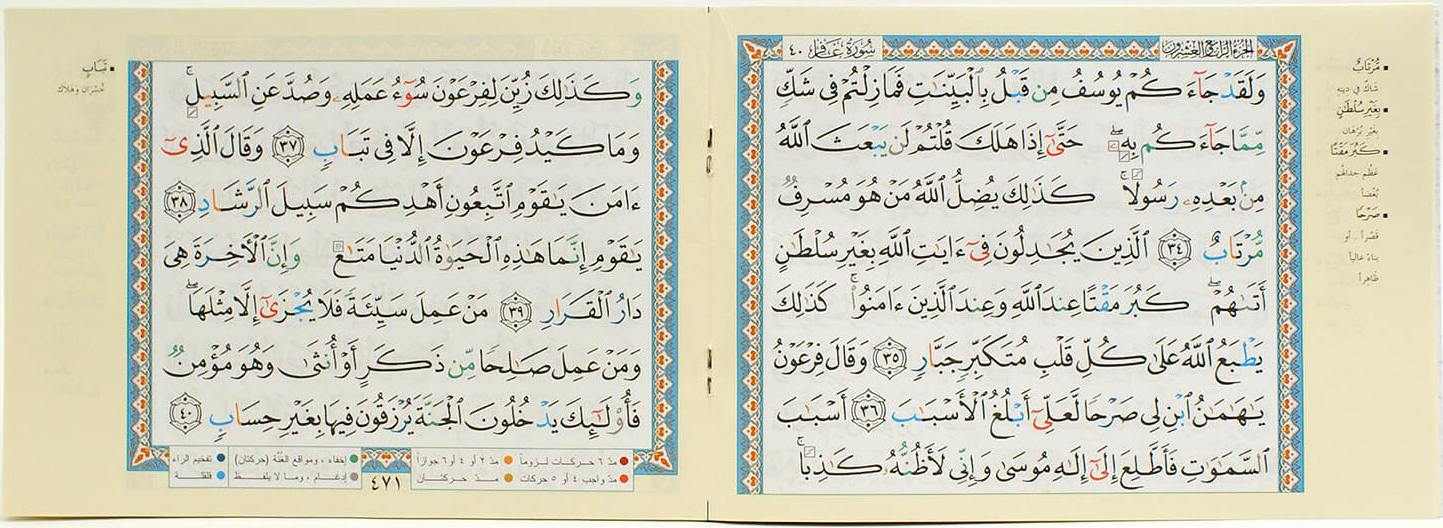 الجزء الرابع والعشرون
سورة غافر ٤٠
وَلَقَدْ جَآءَكُمْ يُوسُفُ مِن قَبْلُ بِالْبَيِّنَٰتِ فَمَا زِلْتُمْ فِى شَكٍّ
مِّمَّا جَآءَكُم بِهِۦ ۖ حَتَّىٰٓ إِذَا هَلَكَ قُلْتُمْ لَن يَبْعَثَ اللَّهُ
مِنۢ بَعْدِهِۦ رَسُولًا ۚ كَذَٰلِكَ يُضِلُّ اللَّهُ مَنْ هُوَ مُسْرِفٌ
مُّرْتَابٌ ﴿٣٤﴾ الَّذِينَ يُجَٰدِلُونَ فِىٓ ءَايَٰتِ اللَّهِ بِغَيْرِ سُلْطَٰنٍ
أَتَىٰهُمْ ۖ كَبُرَ مَقْتًا عِندَ اللَّهِ وَعِندَ الَّذِينَ ءَامَنُوا۟ ۚ كَذَٰلِكَ
يَطْبَعُ اللَّهُ عَلَىٰ كُلِّ قَلْبِ مُتَكَبِّرٍ جَبَّارٍ ﴿٣٥﴾ وَقَالَ فِرْعَوْنُ
يَٰهَٰمَٰنُ ابْنِ لِى صَرْحًا لَّعَلِّىٓ أَبْلُغُ الْأَسْبَٰبَ ﴿٣٦﴾ أَسْبَٰبَ
السَّمَٰوَٰتِ فَأَطَّلِعَ إِلَىٰٓ إِلَٰهِ مُوسَىٰ وَإِنِّى لَأَظُنُّهُۥ كَٰذِبًا ۚ
▪ مُّرْتَابٌ
شاكّ في دينه
▪ بِغَيْرِ سُلْطَٰنٍ
بغير برهان
▪ كَبُرَ مَقْتًا
عظم جدالهم
بغضاً
▪ صَرْحًا
قصراً . أو
بناءً عالياً
ظاهراً
وَكَذَٰلِكَ زُيِّنَ لِفِرْعَوْنَ سُوٓءُ عَمَلِهِۦ وَصُدَّ عَنِ السَّبِيلِ ۚ
وَمَا كَيْدُ فِرْعَوْنَ إِلَّا فِى تَبَابٍ ﴿٣٧﴾ وَقَالَ الَّذِىٓ
ءَامَنَ يَٰقَوْمِ اتَّبِعُونِ أَهْدِكُمْ سَبِيلَ الرَّشَادِ ﴿٣٨﴾
يَٰقَوْمِ إِنَّمَا هَٰذِهِ الْحَيَوٰةُ الدُّنْيَا مَتَٰعٌ وَإِنَّ الْءَاخِرَةَ هِىَ
دَارُ الْقَرَارِ ﴿٣٩﴾ مَنْ عَمِلَ سَيِّئَةً فَلَا يُجْزَىٰٓ إِلَّا مِثْلَهَا ۖ
وَمَنْ عَمِلَ صَٰلِحًا مِّن ذَكَرٍ أَوْ أُنثَىٰ وَهُوَ مُؤْمِنٌ
فَأُو۟لَٰٓئِكَ يَدْخُلُونَ الْجَنَّةَ يُرْزَقُونَ فِيهَا بِغَيْرِ حِسَابٍ ﴿٤٠﴾
▪ تَبَابٍ
خسران وهلاك
مدّ ٦ حركات لزوماً ● مدّ ٢ أو ٤ أو ٦ جوازاً
مدّ واجب ٤ أو ٥ حركات ● مدّ حركتان
إخفاء ، ومواقع الغنّة (حركتان) ● تفخيم الراء
إدغام ، وما لا يلفظ ● قلقلة
٤٧١